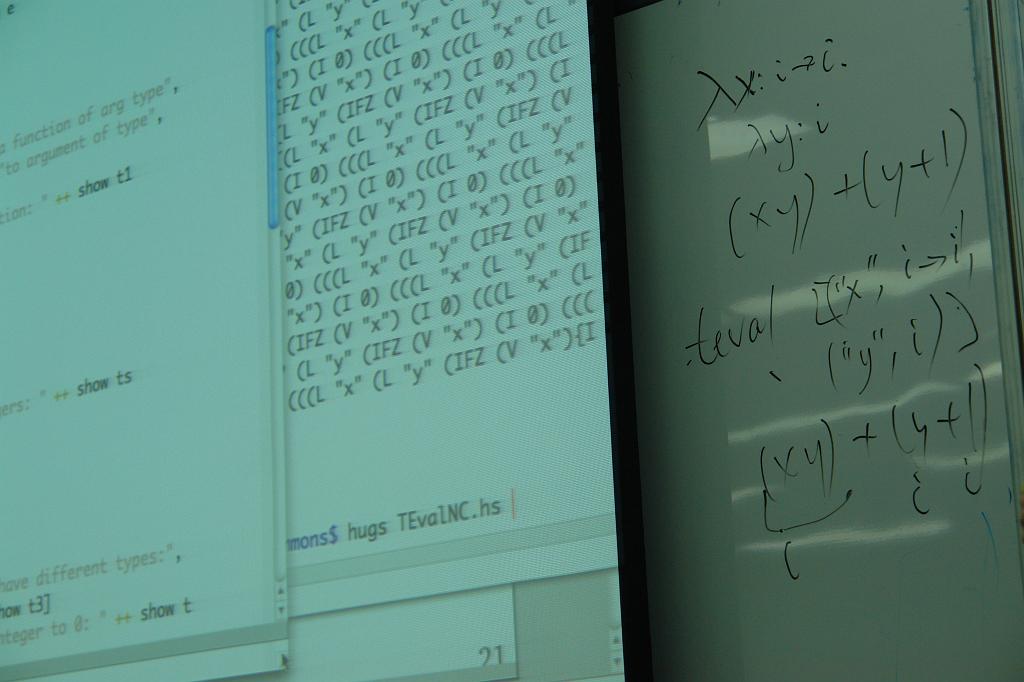 e
a function of arg type",
"to argument of type",
tion: " ++ show t1
gers: " ++ show ts
have different types:",
how t3]
nteger to 0: " ++ show t
" (L "y" (IFZ (V "x"
) (((L "x" (L "y" (I
"x") (I 0) (((L "x" (L "
x") (I 0) (((L "x" (L "
IFZ (V "x") (I 0) (((L
L "y" (IFZ (V "x") (I
(L "x" (L "y" (IFZ (V
(I 0) (((L "x" (L "y"
(V "x") (I 0) (((L "x"
y" (IFZ (V "x") (I 0)
"x" (L "y" (IFZ (V "x"
0) (((L "x" (L "y" (IF
"x") (I 0) (((L "x" (L
(IFZ (V "x") (I 0) (((
(L "y" (IFZ (V "x")
(((L "x" (L "y" (IFZ (V "x"){I
mmons$ hugs TEvalNC.hs
21
λx:i→i.
λy:i
(xy)+(y+1)
teval [("x", i→i),
("y", i)]
(xy)+(y+1)
i i
i